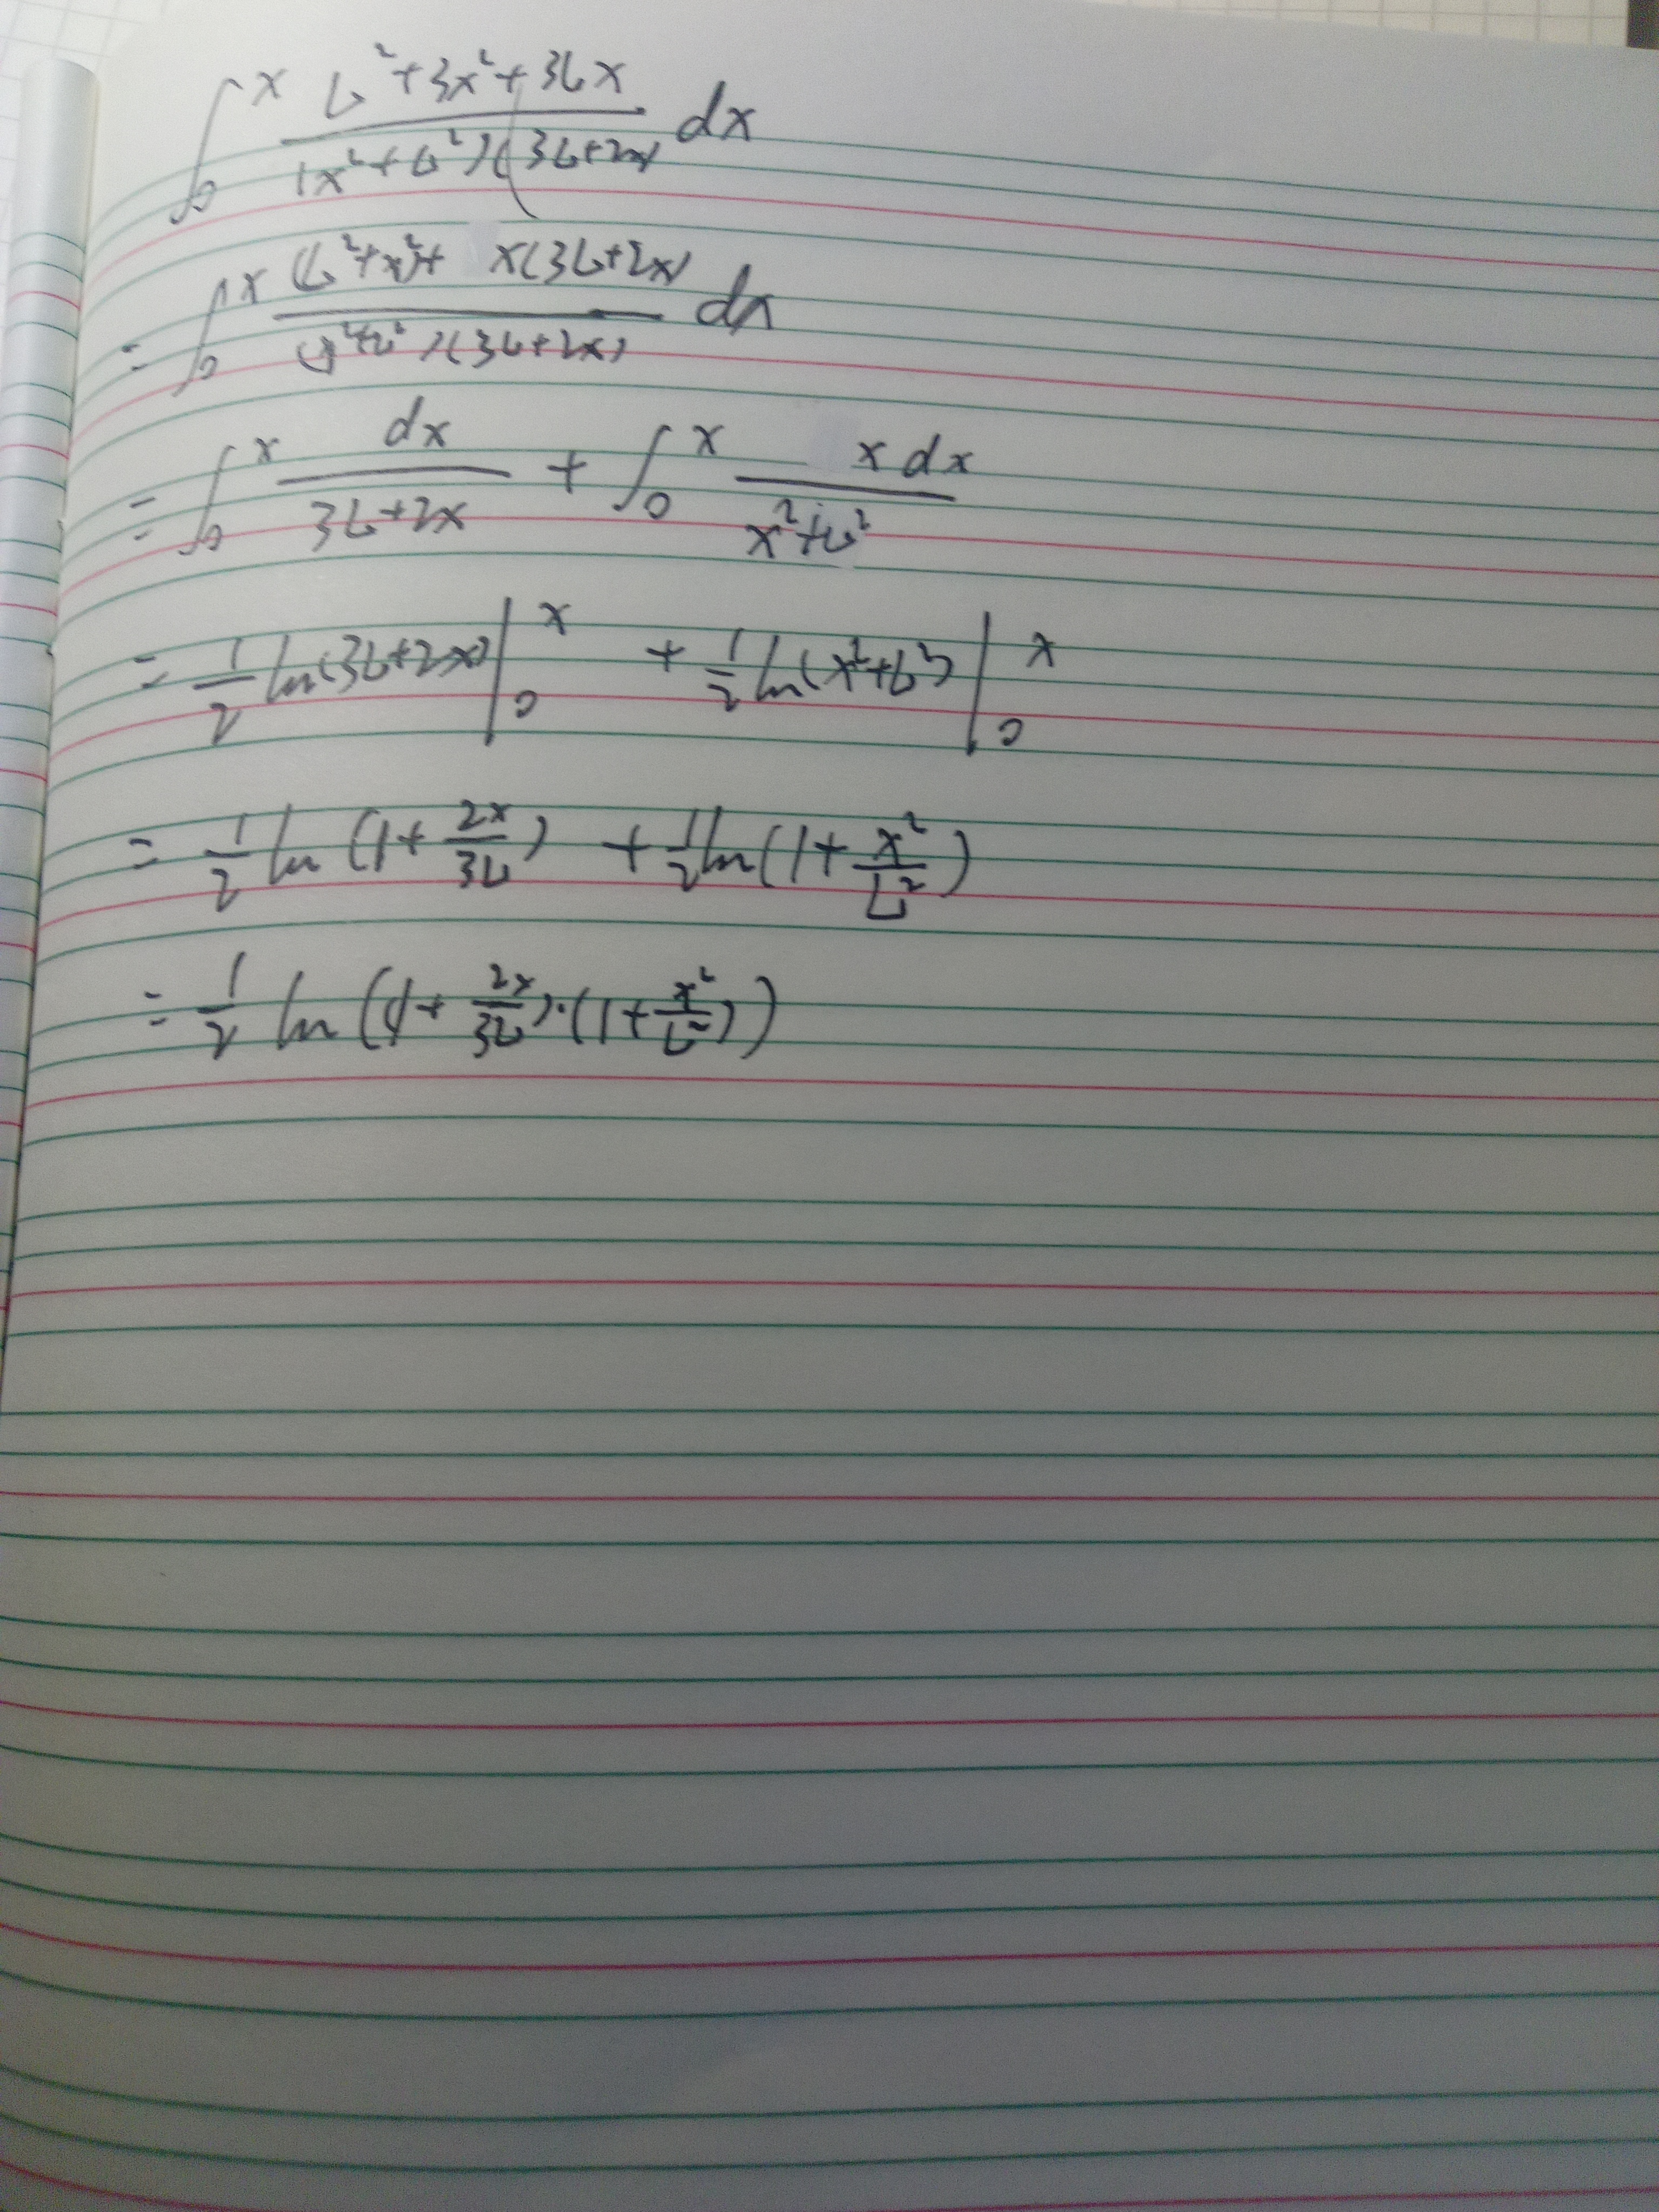 ∫₀ˣ (L²+3x²+3Lx)/((x²+L²)(3L+2x)) dx
= ∫₀ˣ ((L²+x²)+x(3L+2x))/((x²+L²)(3L+2x)) dx
= ∫₀ˣ dx/(3L+2x) + ∫₀ˣ x dx/(x²+L²)
= 1/2 ln(3L+2x)|₀ˣ + 1/2 ln(x²+L²)|₀ˣ
= 1/2 ln(1+2x/3L) + 1/2 ln(1+x²/L²)
= 1/2 ln((1+2x/3L)·(1+x²/L²))